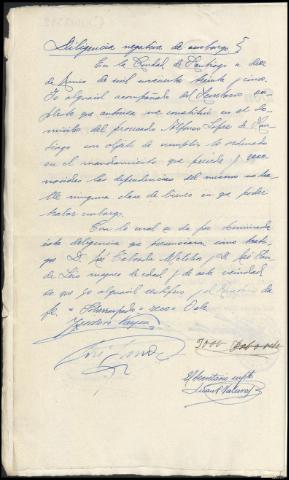 Diligencia negativa de embargo }
En la Ciudad de Santiago a diez
de Junio de mil novecientos treinta y cinco.
Yo alguacil acompañado del Secretario su-
plente que autoriza me constituí en el do-
micilio del procesado Alfonso López de San-
tiago con objeto de cumplir lo ordenado
en el mandamiento que precede y reco-
nocidas las dependencias del mismo no ha-
llé ninguna clase de bienes en que poder
trabar embargo.
Con lo cual se da por terminada
esta diligencia que presenciaron como testi-
gos D. José y D. José
mayores de edad y de esta vecindad
de que yo alguacil certifico y el Secretario da
fe.
El Secretario suplte